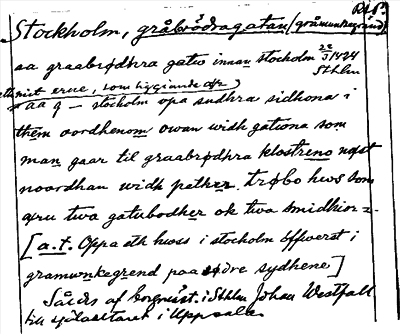 RAP.
Stockholm, gråbrödragatan (gråmunkegränd)
aa graabrødhra gatw innan stockholm 22/3 1424 Sthlm
ett mit erve, som liggiande ær
aa g — stockholm opa sudhra sidhona i
them oordhenom owan widh gatona som
man gaar til graabrødhra klostreno næst
noordhan widh pether trøbo hws som
æru twa gatubodher ok twa smidhior
[a.t. Oppa eth hwss i stockholm öffwerst i
gramwnkegrend paa sødre sydhene]
Såldes af Bergqvist i Sthlm Johan Westfall
till i Uppsala